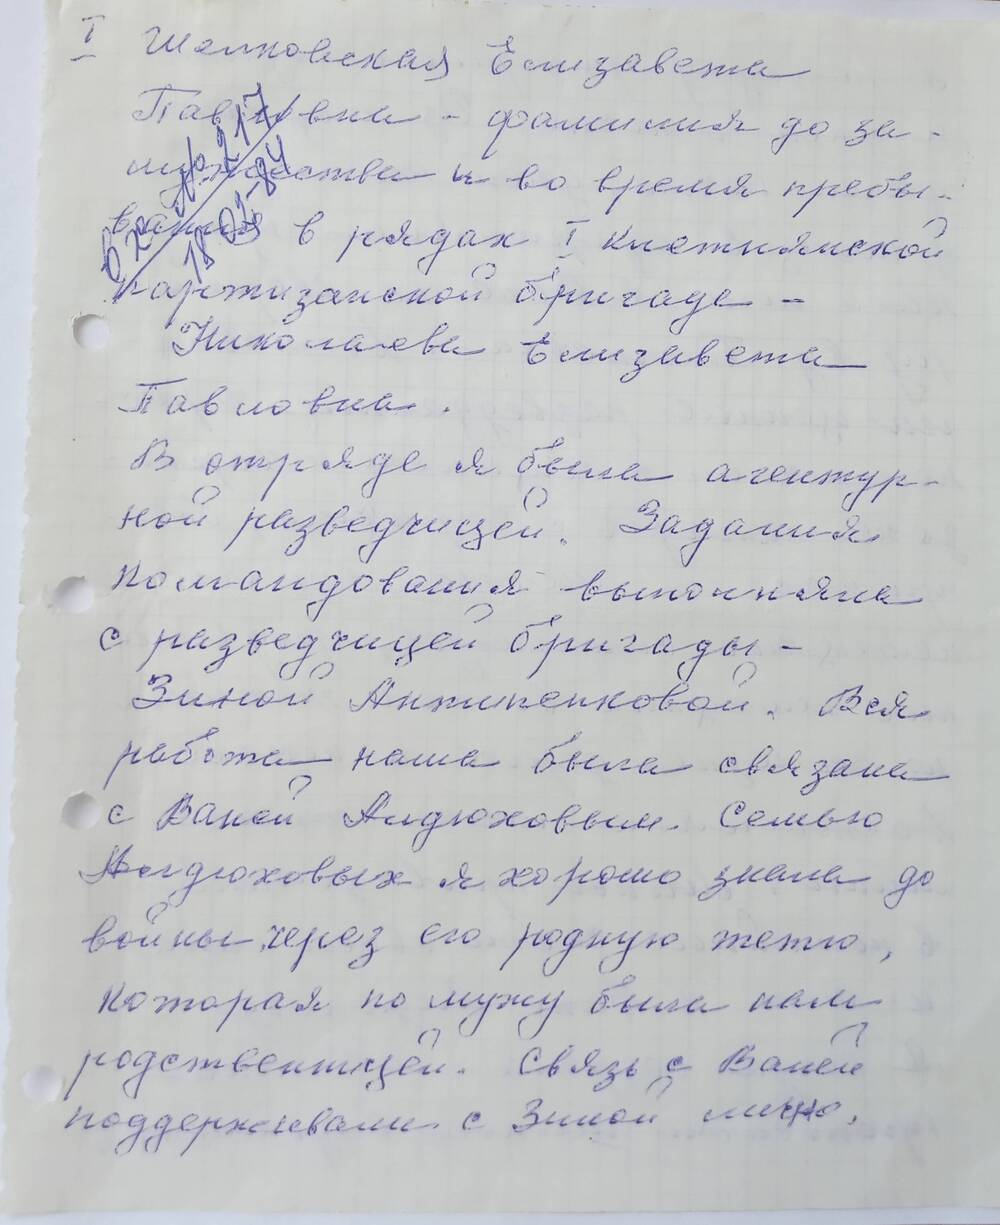 I Шелковская Елизавета
Павловна - фамилия до за-
мужества и во время пребы-
вания в рядах I Клетнянской
партизанской бригаде -
Николаева Елизавета
Павловна.
Вх № 217
18 03-84
В отряде я была агентур-
ной разведчицей. Задания
командования выполняла
с разведчицей бригады -
Зиной Антипенковой. Вся
работа наша была связана
с Ваней Алдюховым. Семью
Алдюховых я хорошо знала до
войны, через его родную тетю,
которая по мужу была нам
родственницей. Связь с Ваней
поддерживали с Зиной лично.